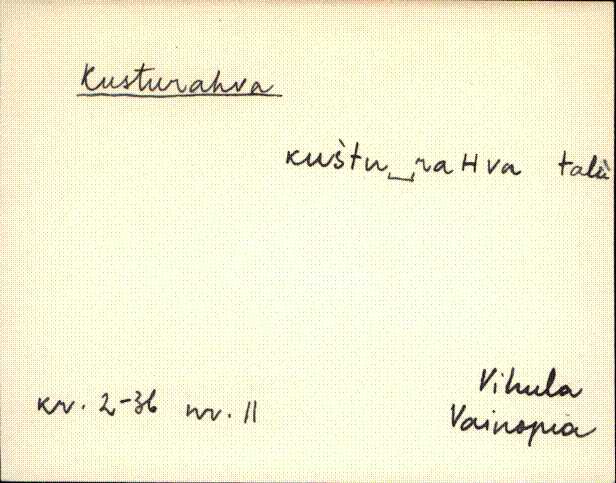 Kusturahva
kuštu‿raHva talu
Vihula
kr. 2-36 nr. 11
Vainopea